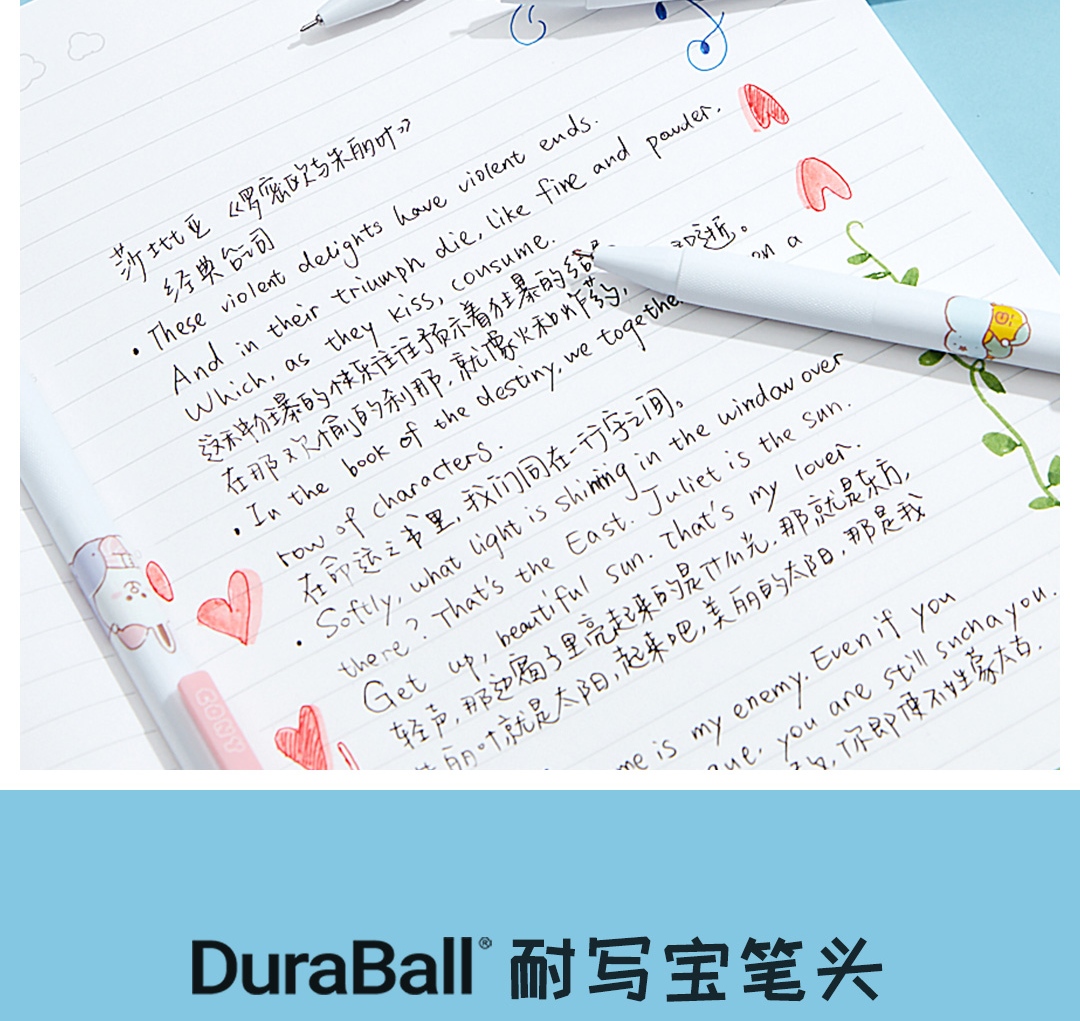 莎士比亚《罗密欧与朱丽叶》
经典台词
• These violent delights have violent ends.
And in their triumph die, like fire and powder.
Which, as they kiss, consume.
这种狂暴的快乐往往预示着狂暴的结 即逝。
在那欢愉的刹那,就像火和炸药,
• In the book of the destiny, we together on a
row of characters.
在命运之书里,我们同在一行字之间。
• Softly, what light is shining in the window over
there? That's the East. Juliet is the sun.
Get up, beautiful sun. That's my lover.
轻声,那边窗子里亮起来的是什么光,那就是东方,
丽叶就是太阳,起来吧,美丽的太阳,那是我
me is my enemy. Even if you
gue, you are still such a you.
你即使不姓蒙太古.
GONY
DuraBall® 耐写宝笔头